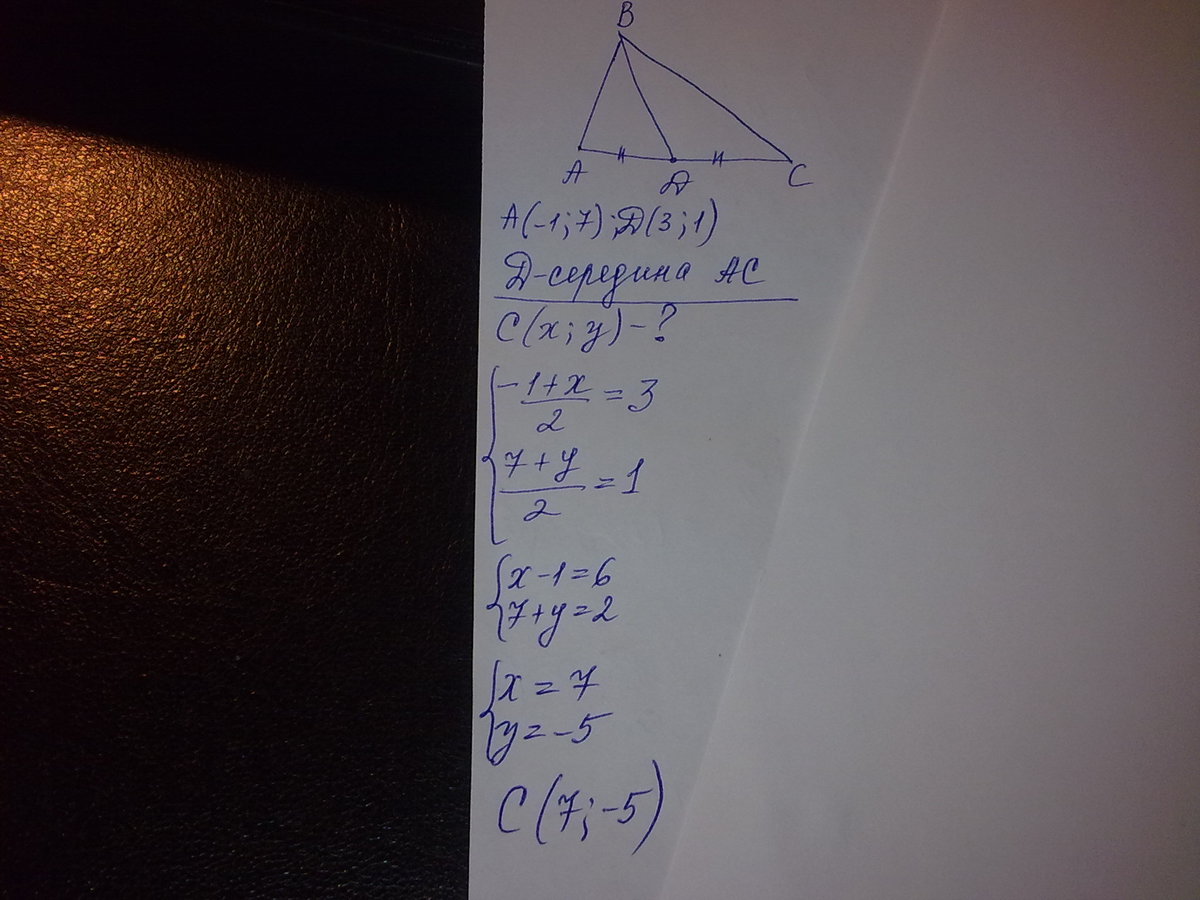 B
A D C
A(-1;7); D(3;1)
D-середина AC
C(x;y)-?
{-1+x/2=3
7+y/2=1
{x-1=6
7+y=2
{x=7
y=-5
C(7;-5)